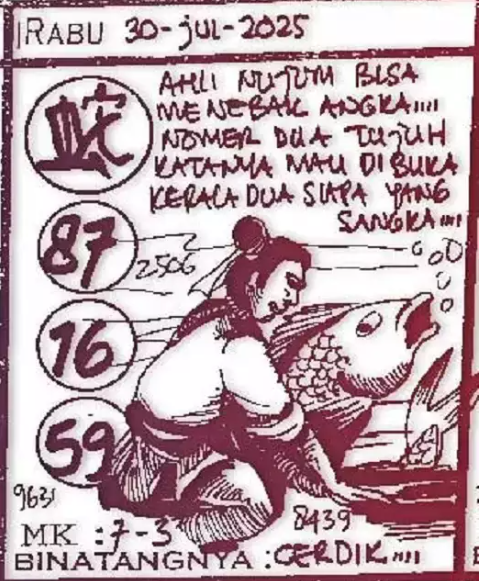 RABU 30-JUL-2025
AHLI NUJUM BISA
MENEBAK ANGKA....
NOMER DUA TUJUH
KATANYA MAU DI BUKA
KEPALA DUA SIAPA YANG
SANGKA....
87
2506
16
59
9631
8439
MK : 7-3
BINATANGNYA : CERDIK....